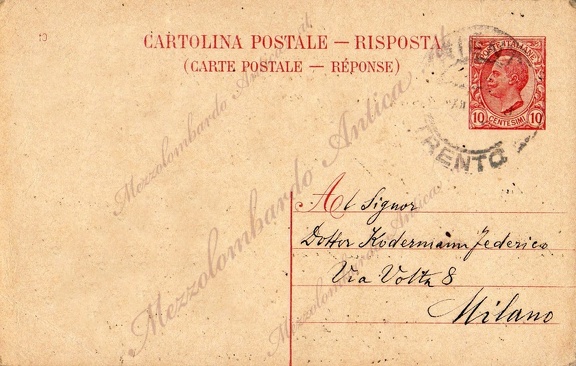 CARTOLINA POSTALE — RISPOSTA
(CARTE POSTALE — RÉPONSE)
10 CENTESIMI 10
TRENTO
Mezzolombardo Antica
Mezzolombardo Antica
Mezzolombardo Antica
Al Signor
Dottor Kodermann Federico
Via Volta 8
Milano